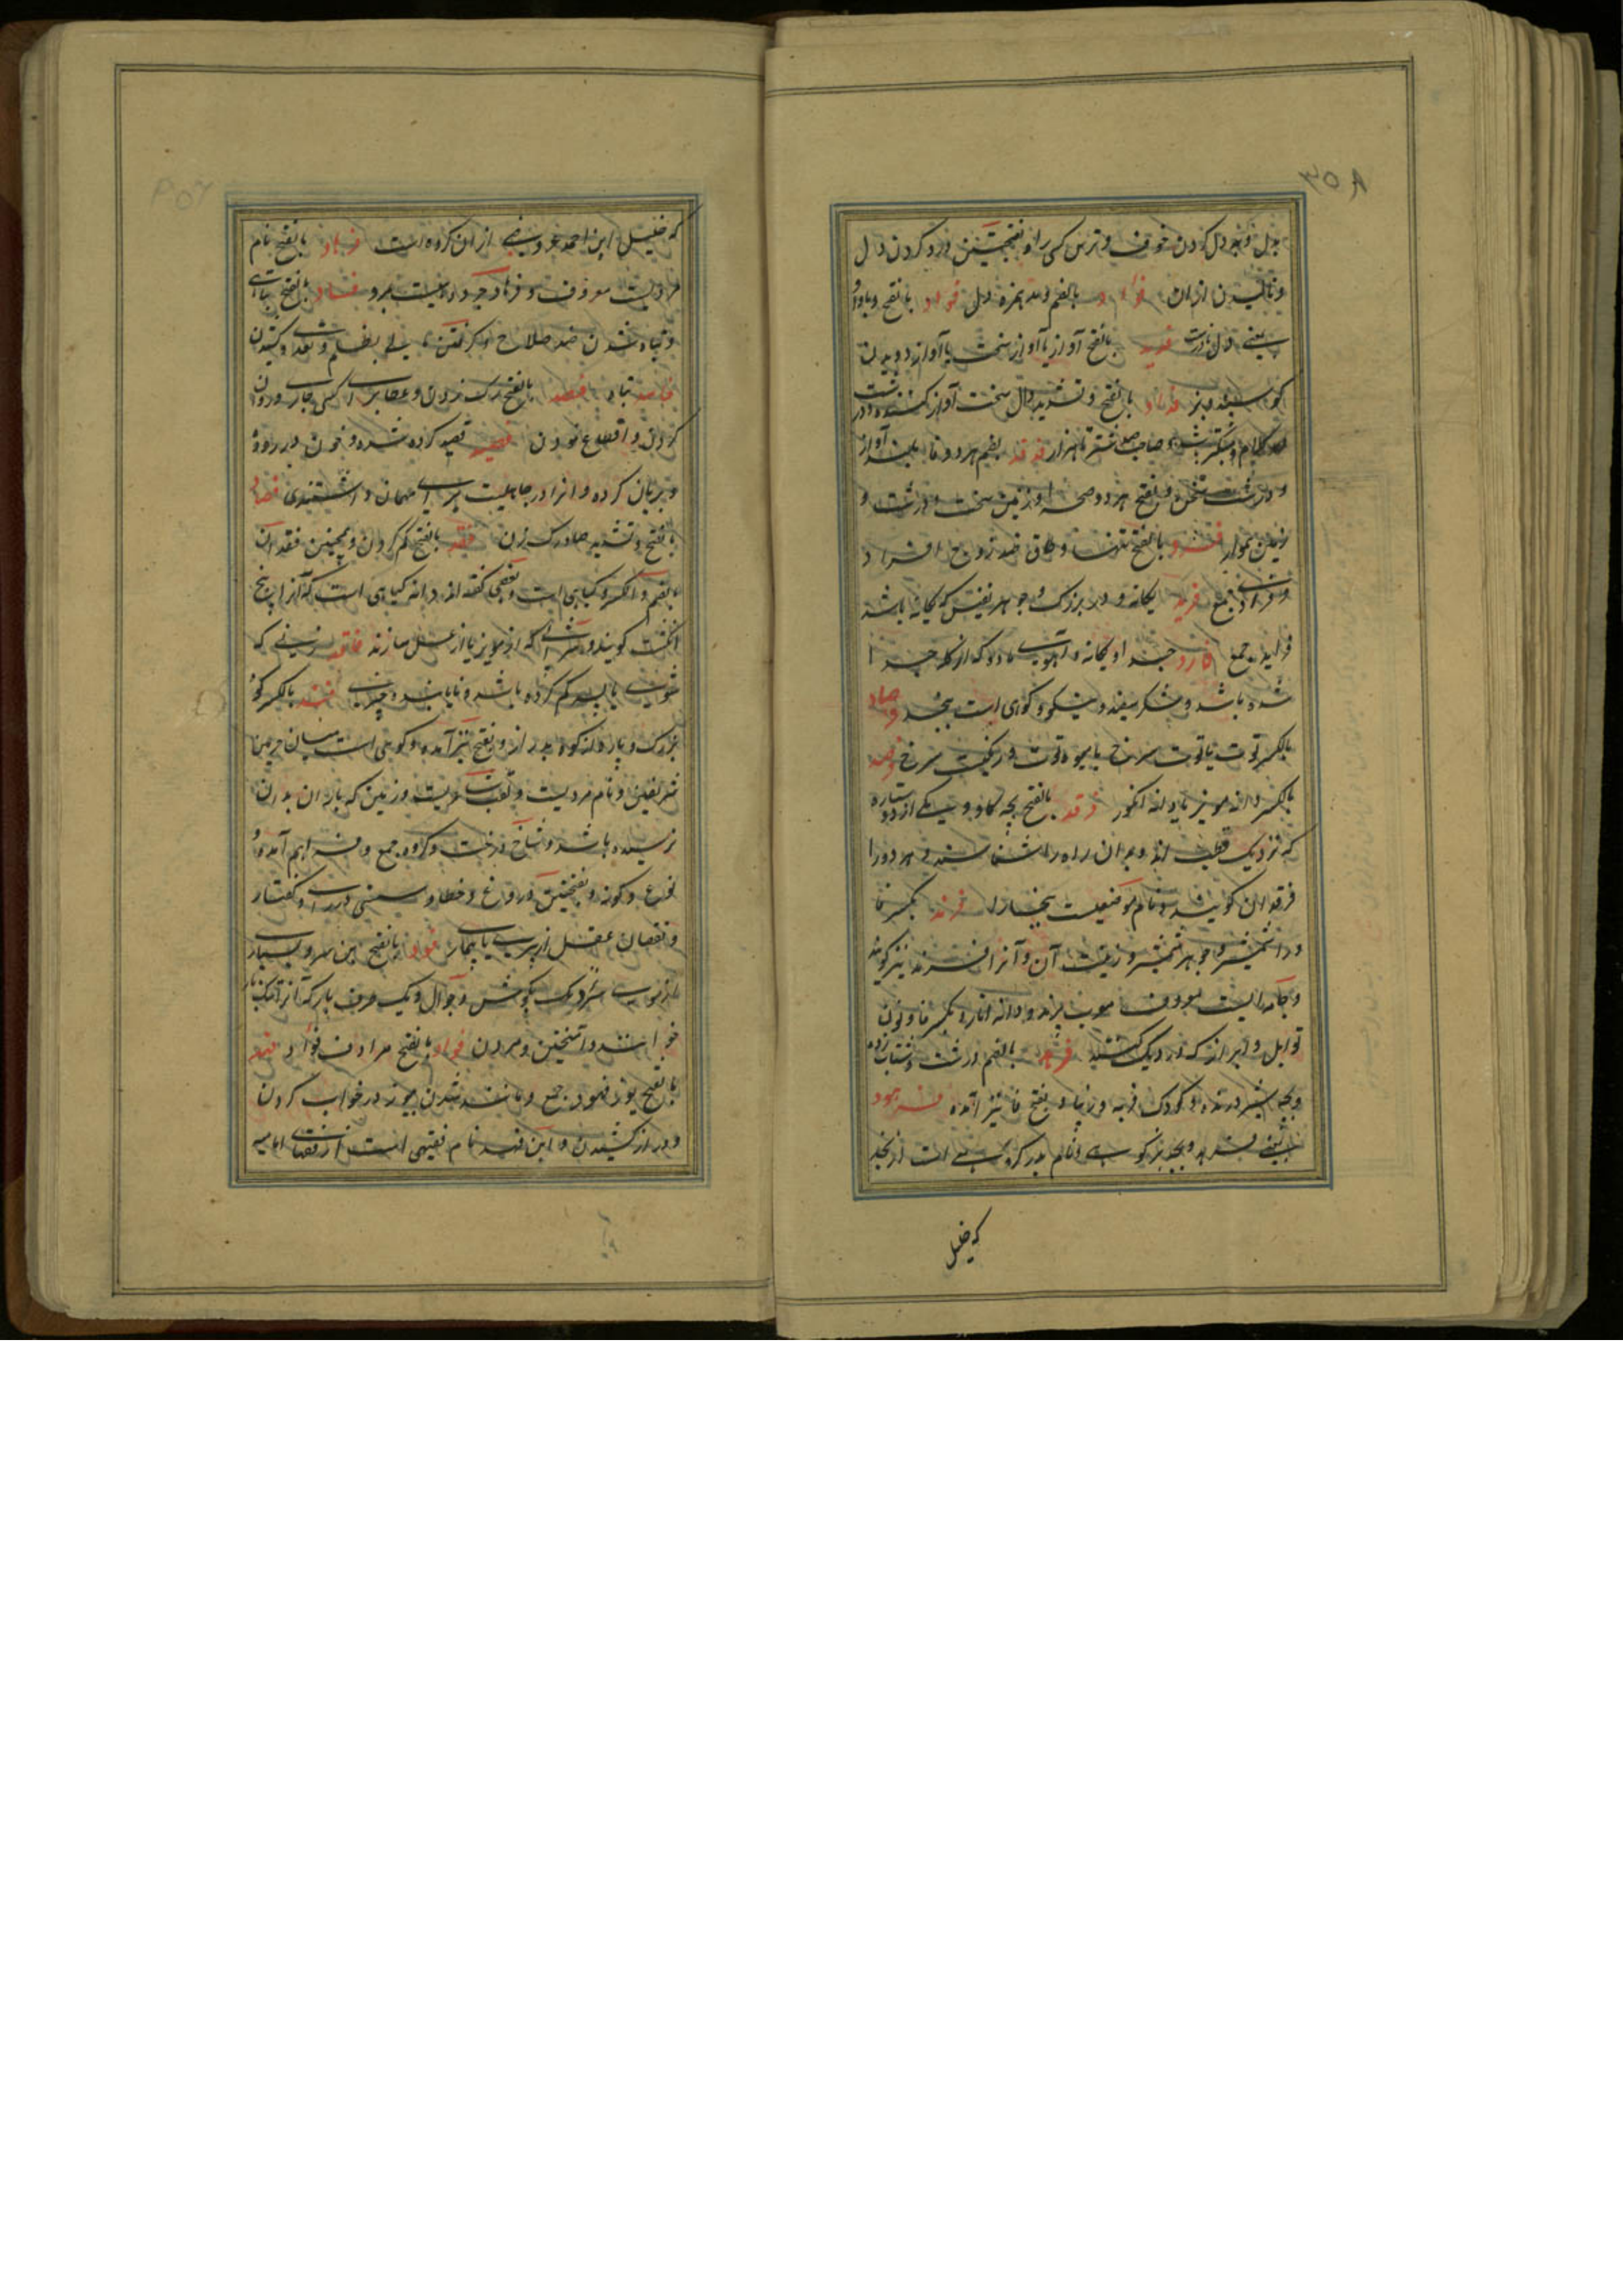 بدل و بر دل کردن خوف و ترس کسی را و بفتحتین درد کردن دل
و نالیدن ازان فؤاد بالضم و مد همزه دل فواد بالفتح و باواو
یعنی دل فدید بالفتح آواز یا آواز سخت یا آواز دویدن
گوسپند و بز فداد بالفتح و تشدید دال سخت آواز کننده و درشت
کلام و متکبر و صاحب شتر تا هزار فدفد بضم هر دو فا بلند آواز
و درشت سخن و بفتح هر دو صحرا و زمین سخت و درشت و
زمین هموار فرد بالفتح تنها و طاق ضد زوج افراد
و فرادی جمع فرید یگانه و در بزرگ و جوهر نفیس که یگانه باشد
فراید جمع فارد جدا و یگانه و آهوی ماده که از گله جدا
شده باشد و شکر سفید و نیکو و کوهی است بنجد فرصاد
بالکسر توت یا توت سرخ یا میوه توت و رنگیست سرخ فرصد
بالکسر دانه مویز یا دانه انگور فرقد بالفتح بچه گاو و یکی از دو ستاره
که نزدیک قطب اند و بدان راه را شناسند و هر دو را
فرقدان گویند و نام موضعیست ببخارا فرند بکسر فا
و را شمشیر و جوهر شمشیر و زینت آن و آنرا افرند نیز گویند
و جامه ایست معروف معرب پرند و دانه انار و بکسر فا و نون
توابل و ابزار که در دیگ کنند فرهد بالضم درشت و شتاب زده
و بچه شیر درنده و کودک فربه و زیبا و بفتح فا نیز آمده فرهود
بمعنی فرهد و بچه بز کوهی و نام پدر گروهی است از نجد
که خلیل
که خلیل ابن احمد عروضی ازان گروه است فرهاد بالفتح نام
مردیست معروف و فرهاد جرد دهیست بمرو فساد بالفتح تباهی
و تباه شدن ضد صلاح و گرفتن مالی بظلم و تعدی و کشیدن
فاسد تباه فصد بالفتح رگ زدن و عطا برای کسی جاری و روان
کردن و اقطاع نمودن فصید فصد کرده شده و خون در روده
و بریان کرده و انرا در جاهلیت برای مهمان داشتندی فصاد
بالفتح و تشدید صاد رگ زن فقد بالفتح گم کردن و همچنین فقدان
بالضم و الکسر و گیاهی است و بعضی گفته اند دانه گیاهی است که آنرا پنج
انگشت گویند و شرابی که از مویز یا از عسل سازند فاقد زنی که
شوی یا پسر گم کرده باشد و نایابنده چیزی فند بالکسر کوه
بزرگ و پاره از کوه دراز و بفتح نیز آمده و کوهی است میان حرمین
شریفین و نام مردیست و لقب و زمین که باران بدان
نرسیده باشد و شاخ درخت و گروه جمع و فراهم آمده و
نوع و گونه و بفتحتین دروغ و خطا و سستی در رای و گفتار
و نقصان عقل از پیری یا بیماری فود بالفتح این سو و بسیار
از موی سر نزدیک بگوش و جوال و یک طرف بار که آنرا تنگ بار
خوانند و آمیختن و مردن فواد بالفتح مرادف فؤاد فهد
بالفتح یوز فهود جمع و مانند شدن بیوز در خواب کردن
و دراز کشیدن و ابن فهد نام فقیهی است از فقهای امامیه